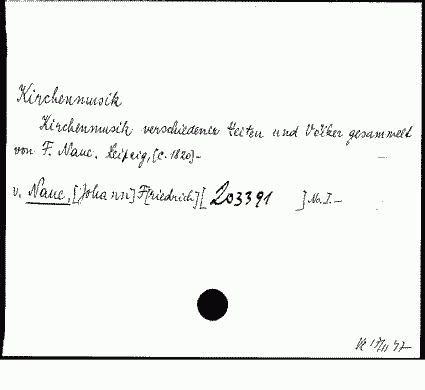 Kirchenmusik
Kirchenmusik verschiedener Zeiten und Völker gesammelt
von F. Naue. Leipzig, [c. 1820]-
v. Naue, [Johann] F[riedrich] [ 203391 ] No. I.-
47